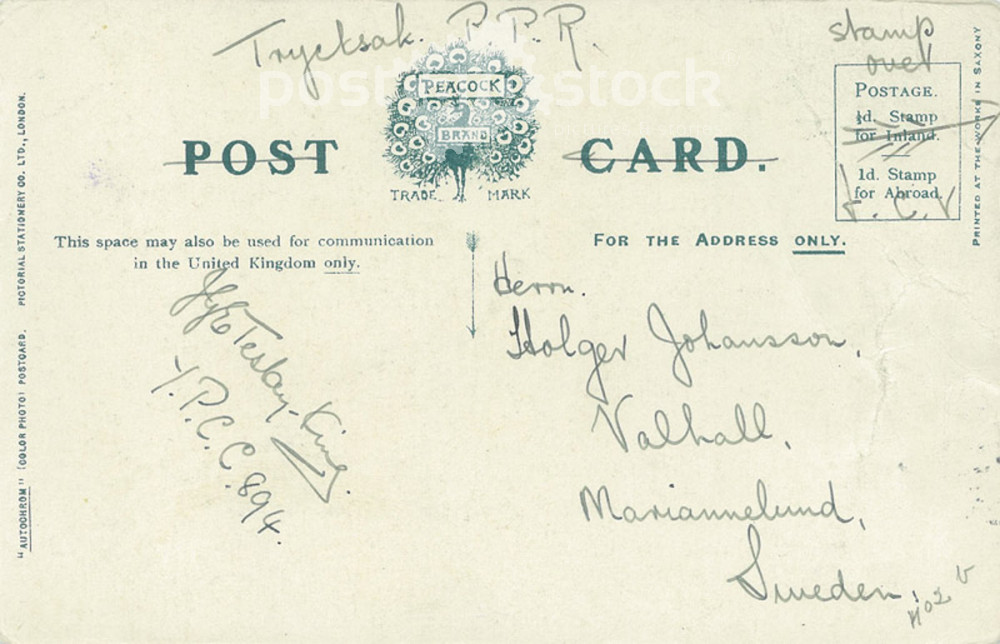 Trycksak. P.P.R.
stamp
over
PEACOCK
BRAND
TRADE MARK
POST CARD.
POSTAGE.
½d. Stamp
for Inland.
1d. Stamp
for Abroad.
This space may also be used for communication
in the United Kingdom only.
FOR THE ADDRESS ONLY.
Herrn.
Holger Johansson,
Valhall,
Mariannelund,
Sweden.
King.
T.P.C.C. 894.
"AUTOCHROM" (COLOR PHOTO) POSTCARD. PICTORIAL STATIONERY CO. LTD., LONDON.
PRINTED AT THE WORKS IN SAXONY